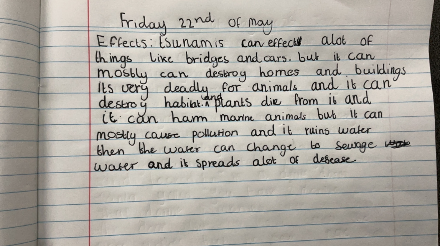 Friday 22nd of may
Effects: tsunamis can effect alot of
things like bridges and cars. but it can
mostly can destroy homes and buildings
Its very deadly for animals and it can
destroy habitat. and plants die from it and
it can harm marine animals but it can
mostly cause pollution and it ruins water
then the water can change to sewage
water and it spreads alot of desease